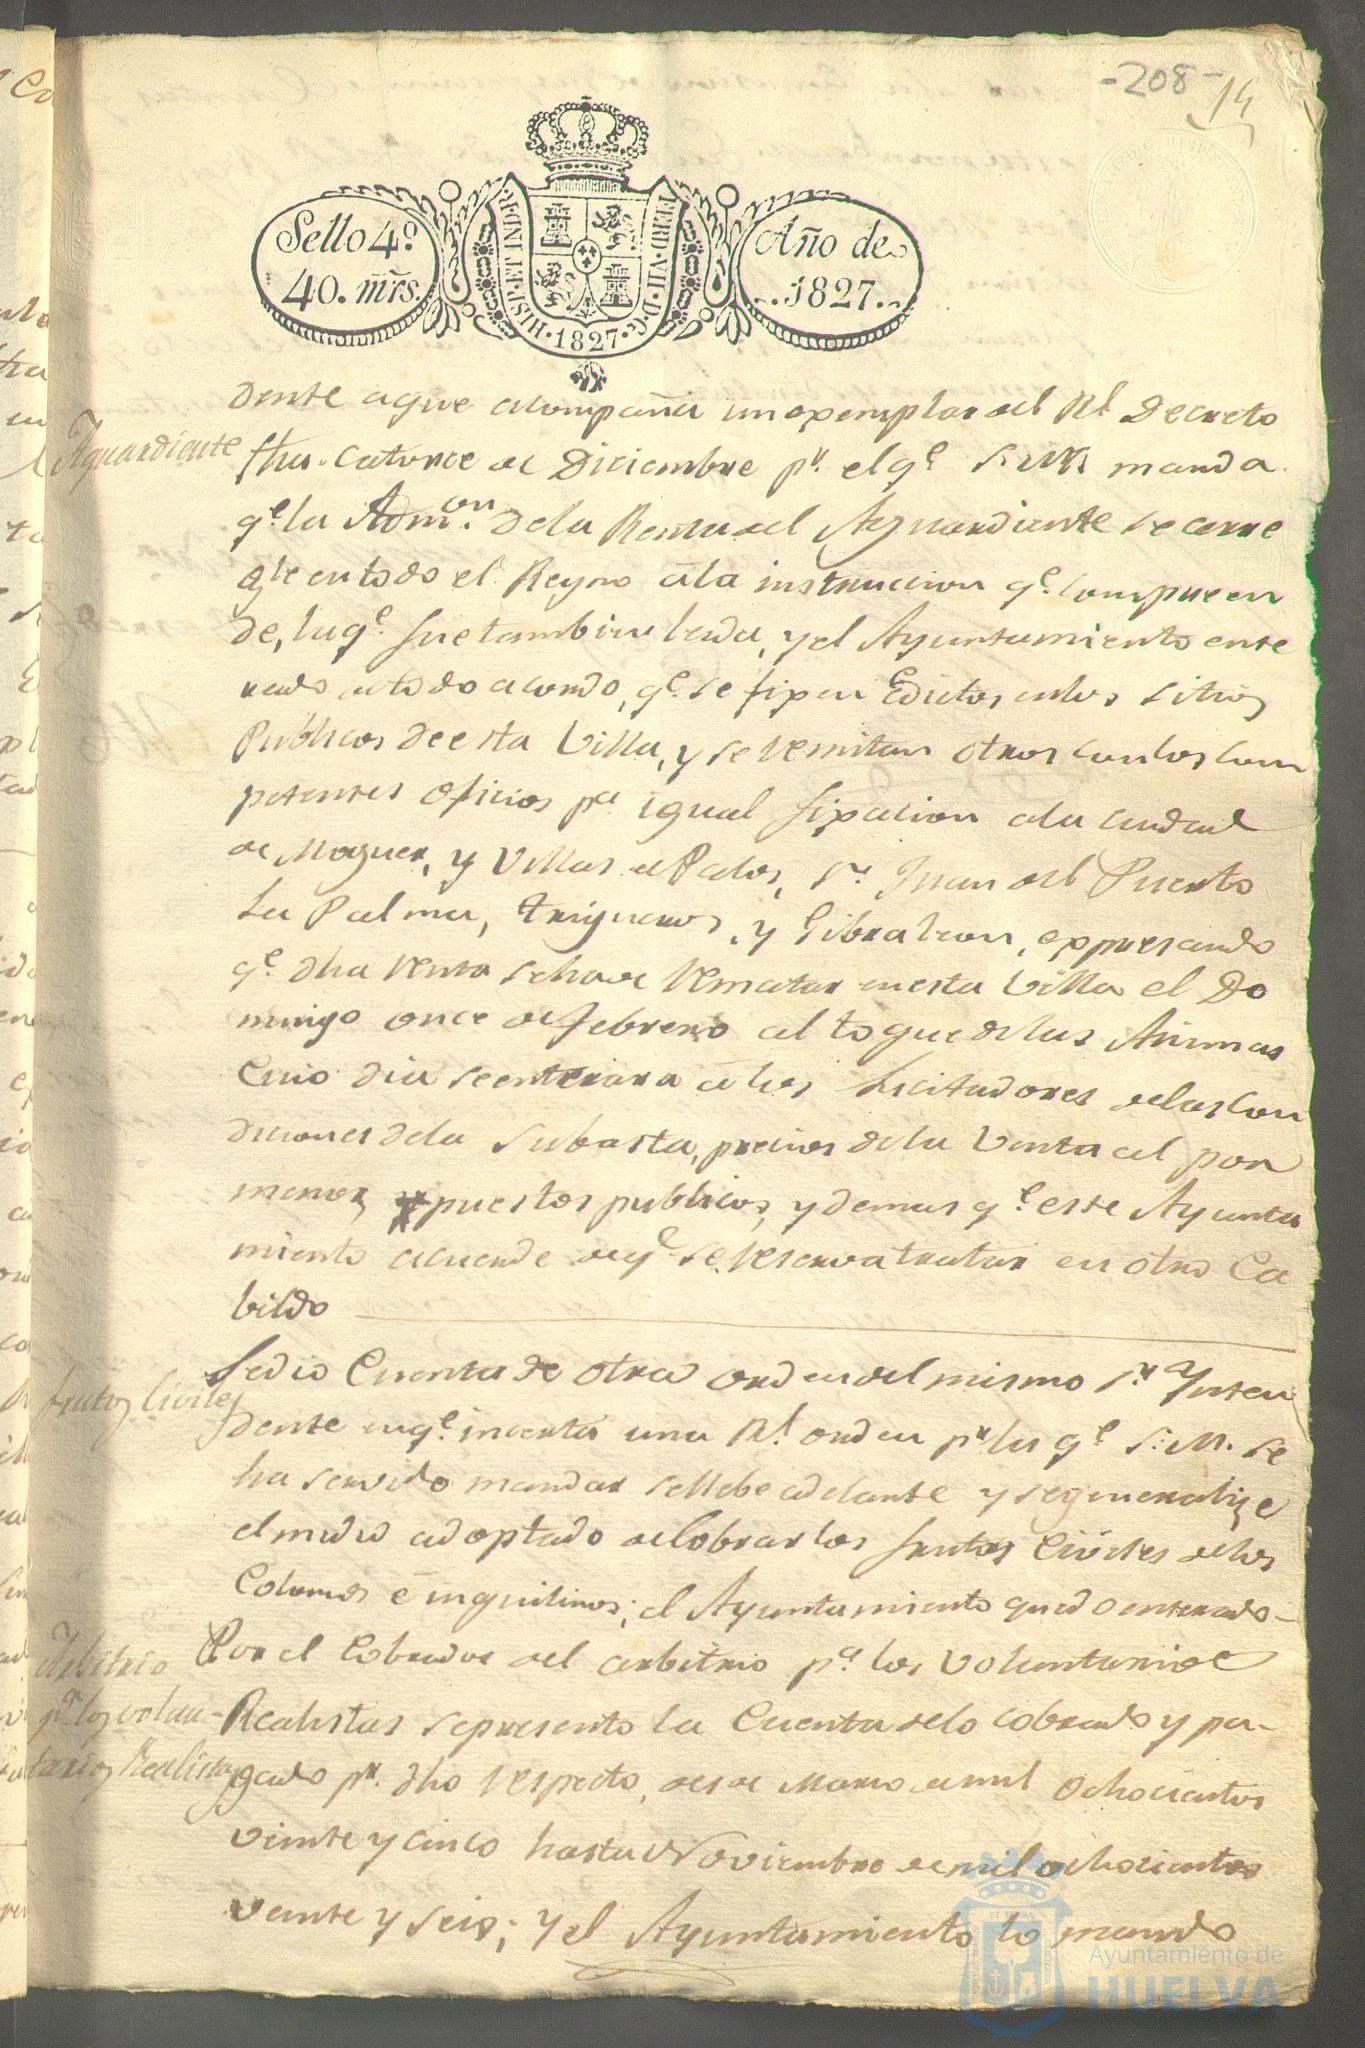 -208-
14
Sello 4.º
40. mrs.
HISP. ET IND. R.
FERD. VII. D. G.
1827
Año de
1827.
Aguardiente
dente aque acompaña un exemplar del Rl Decreto
fha. Catorce de Diciembre pr. el qe. S. M. manda
qe. la Admon. dela Renta del Aguardiente se arre
gle en todo el Reyno ála instruccion qe. compreen
de, la qe. fue tambien leida, y el Ayuntamiento ente
rado de todo acordo, qe. se fixen Edictos enlos sitios
Publicos deesta Villa, y se remitan otros con los com
petentes oficios pa. igual fixacion ala ciudad
de Moguer, y Villas de Palos, Sn. Juan del Puerto
La Palma, Trigueros, y Gibraleon, expresando
qe. dha renta se ha de rematar en esta Villa el Do
mingo once de febrero al toque delas Animas
Cuio dia se enterara á los Licitadores delas con
diciones dela Subasta, precios dela Venta al por
menor, puestos publicos, y demas qe. este Ayunta
miento acuerde deqe. se reserva tratar en otro Ca
bildo
frutos Civiles
Se dio Cuenta de otra orden del mismo Sr. Ynten
dente en qe. inserta una Rl. orden pr. la qe. S. M. se
ha servido mandar se llebe adelante y se generalize
el medio adoptado de Cobrar los frutos Civiles delos
Colonos é inquilinos; el Ayuntamiento quedo enterado-
Arbitrio
pa. los volun-
tarios Realistas
Por el Cobrador del arbitrio pa. los Voluntarios
Realistas se presento la Cuenta delo cobrado y pa-
gado pr. dho respecto, desde Marzo de mil ochocientos
veinte y cinco hasta Noviembre de mil ochocientos
veinte y seis; y el Ayuntamiento lo mando
Ayuntamiento de
HUELVA